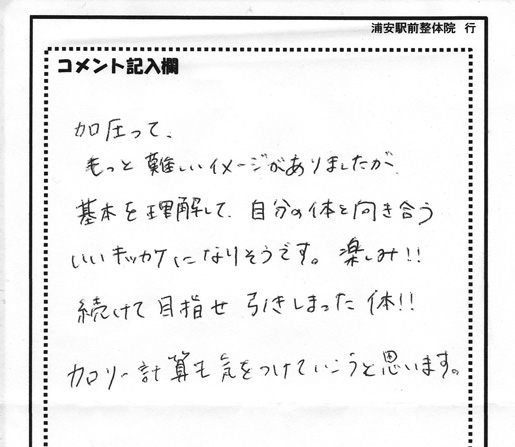 浦安駅前整体院 行
コメント記入欄
加圧って、
もっと難しいイメージがありましたが、
基本を理解して、自分の体と向き合う
いいキッカケになりそうです。楽しみ!!
続けて目指せ引きしまった体!!
カロリー計算も気をつけていこうと思います。